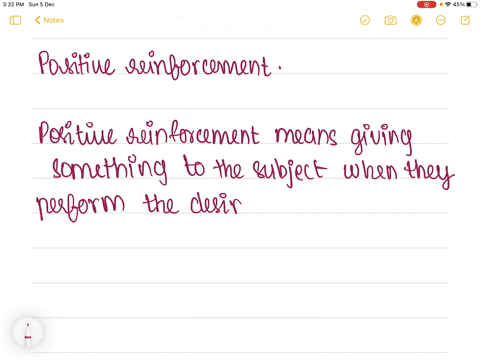 3:22 PM Sun 5 Dec
45%
Notes
Positive reinforcement.
Positive reinforcement means giving
something to the subject when they
perform the desir